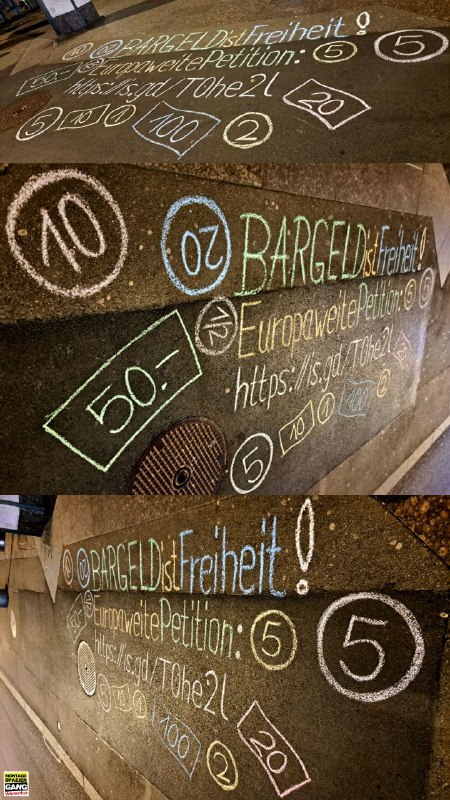 10 20 BARGELDistFreiheit!
50.- 1/2 EuropaweitePetition: 5 5
https://is.gd/TOhe2l 20
5 10 1 100 2
10 20 BARGELDistFreiheit!
1/2 EuropaweitePetition: 5 5
50.- https://is.gd/TOhe2l 20
5 10 1 100 2
10 20 BARGELDistFreiheit!
50.- 1/2 EuropaweitePetition: 5 5
https://is.gd/TOhe2l
5 10 1 100 2 20
MONTAGS
SPAZIER
GANG